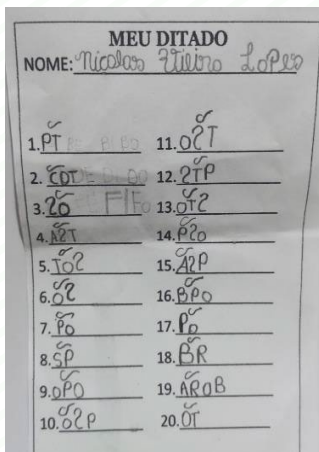 MEU DITADO
NOME: Nicolas Vieira Lopes
1. PT
2. CDT
3. 2O
4. A2T
5. IO2
6. O2
7. PO
8. SP
9. OPO
10. O2P
11. O2T
12. 2TP
13. OT2
14. P2O
15. A2P
16. BPO
17. PO
18. BR
19. AROB
20. OT